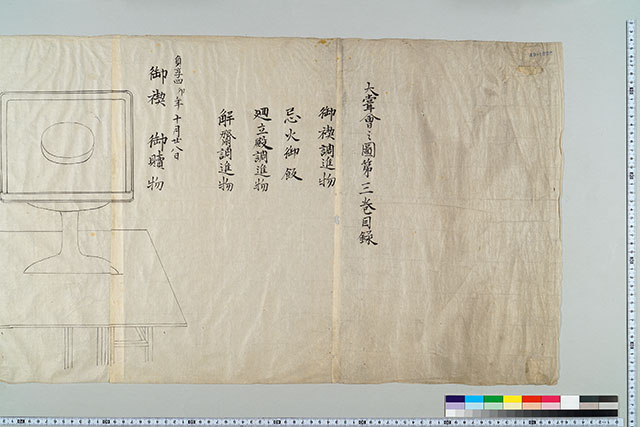 大嘗會之圖第三巻目録
御禊調進物
忌火御飯
廻立殿調進物
解齋調進物
貞享四卯年十月廿八日
御禊 御贖物